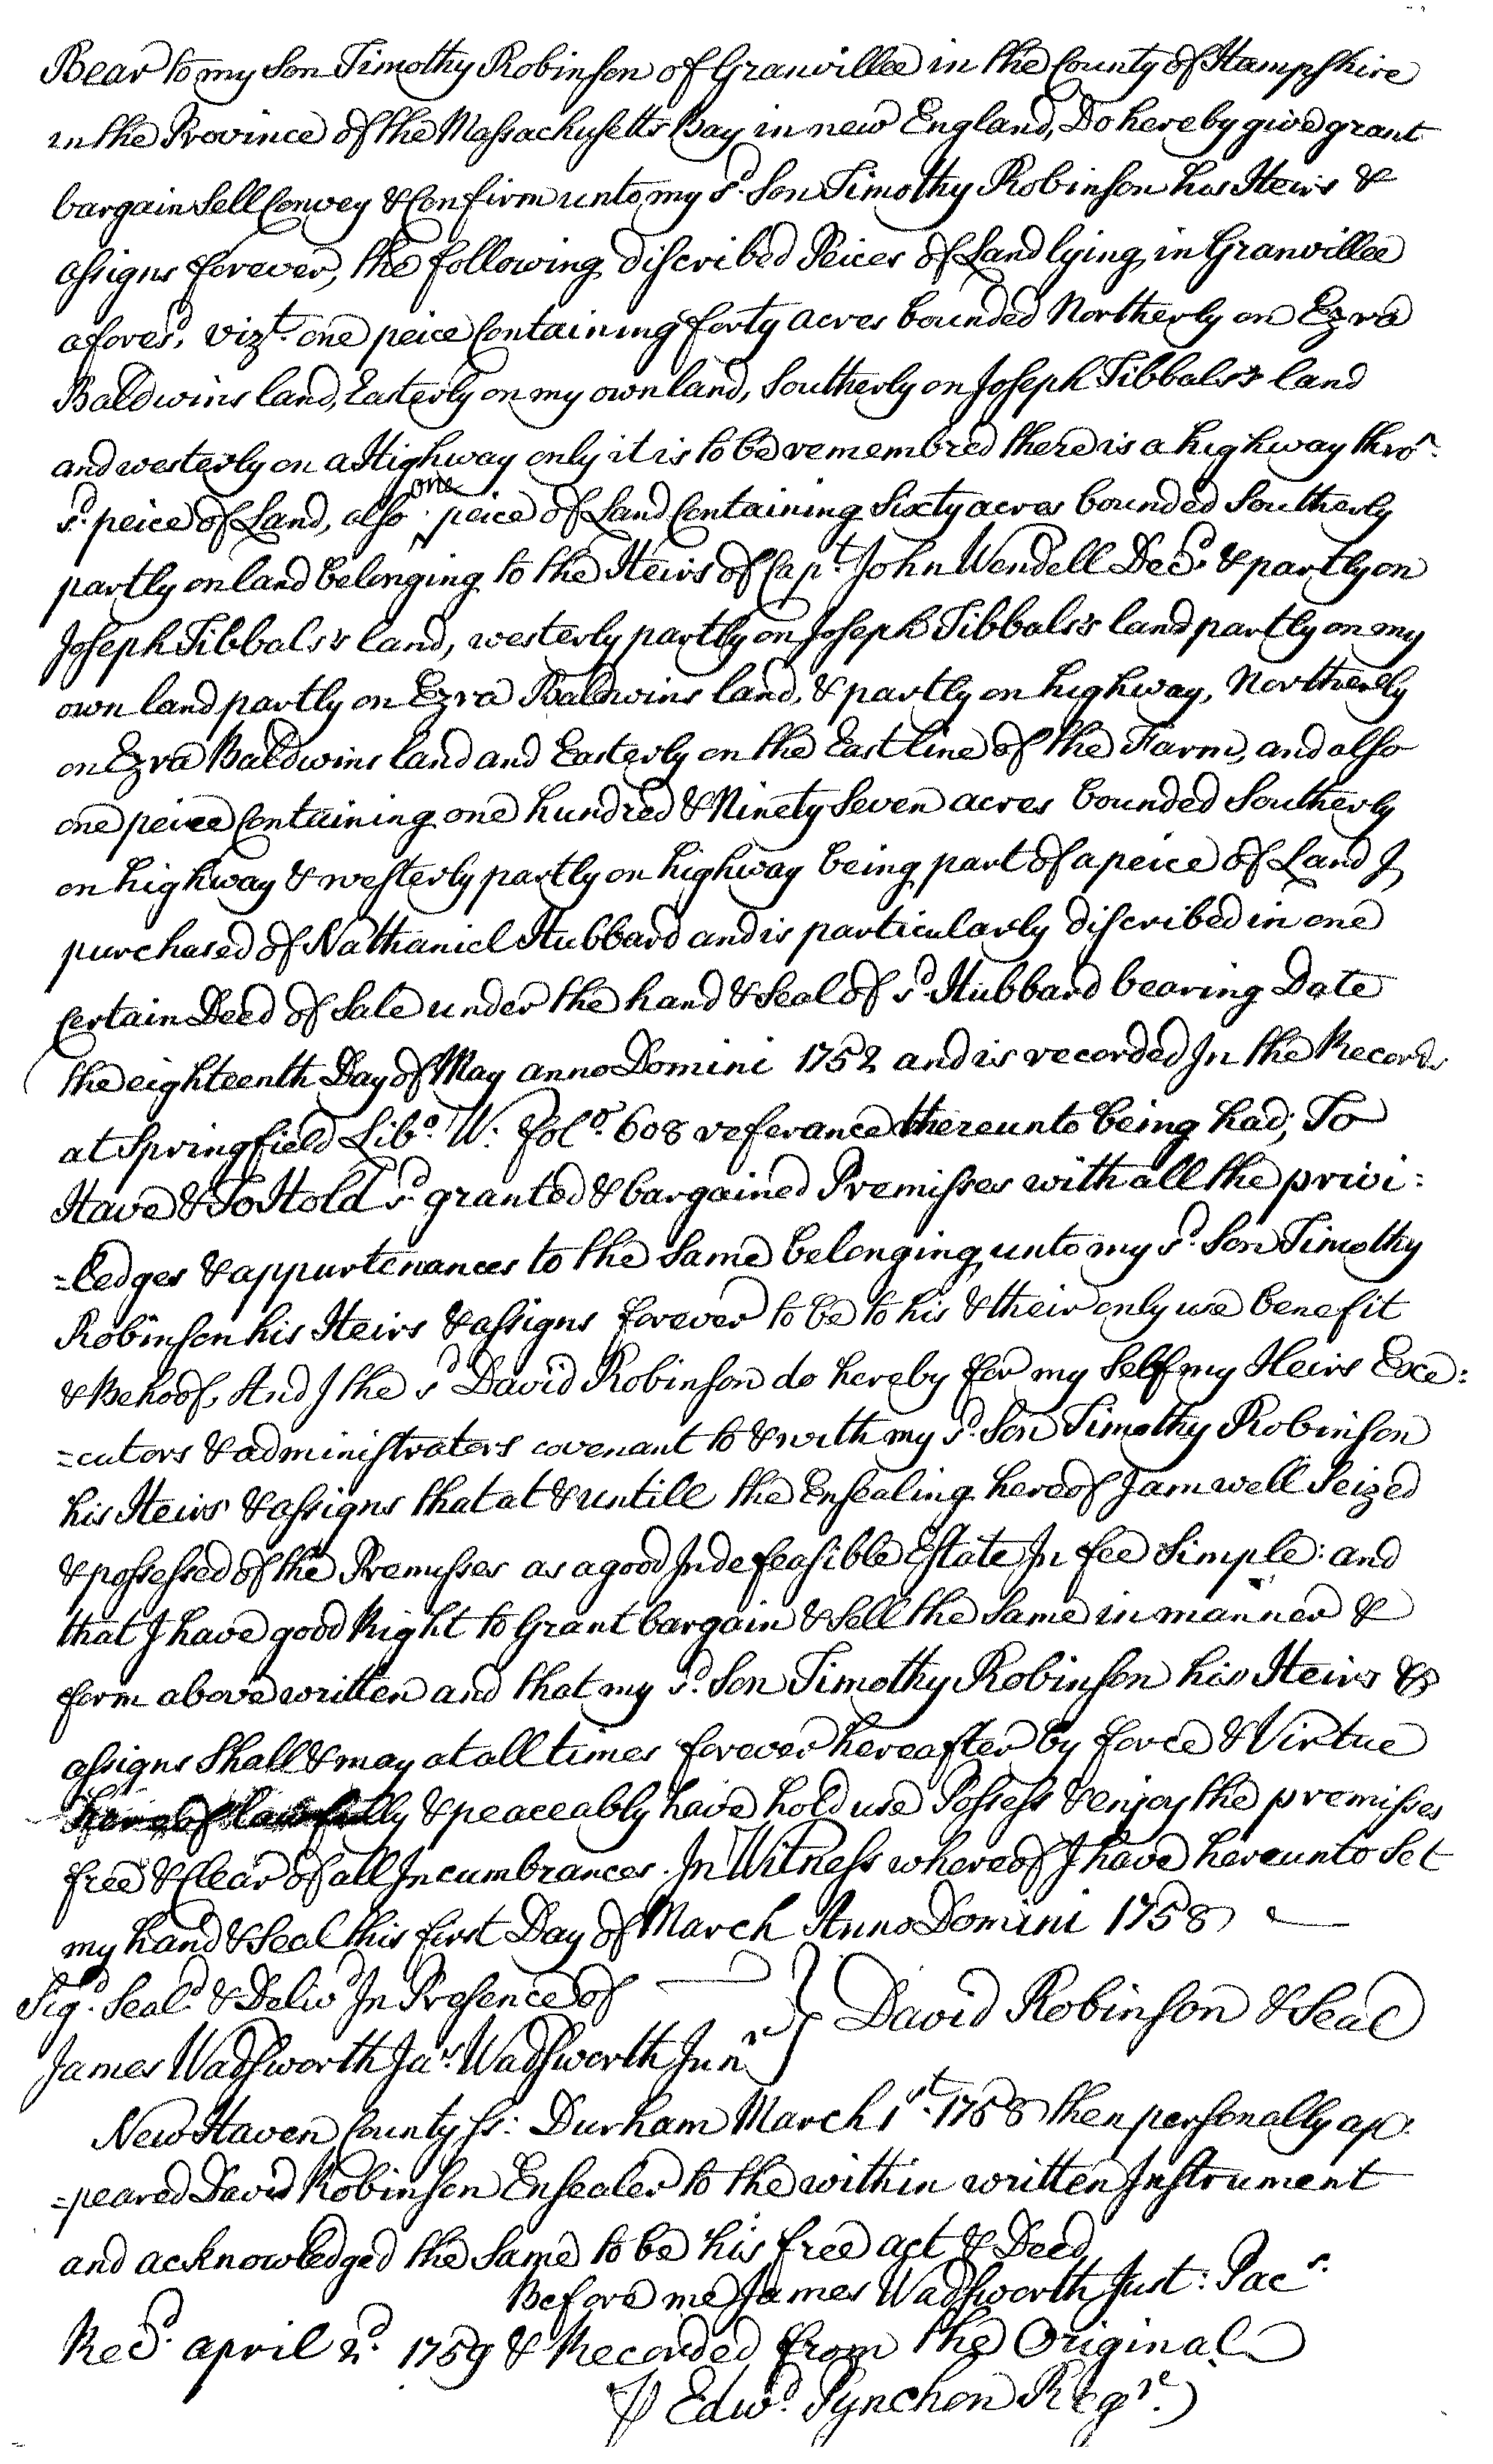 Bear to my Son Timothy Robinson of Granvillee in the County of Hampshire
in the Province of the Massachusetts Bay in new England, Do hereby give grant
bargain Sell Convey & Confirm unto my sd. Son Timothy Robinson his Heirs &
assigns forever, the following discribed Peices of Land lying in Granvillee
aforesd. vizt. one peice Containing forty acres bounded Northerly on Ezra
Baldwins land, Easterly on my own land, Southerly on Joseph Tibbals's land
and westerly on a Highway only it is to be remembred there is a highway thro'
sd. peice of Land, also one peice of Land Containing Sixty acres bounded Southerly
partly on land belonging to the Heirs of Capt. John Wendell Decd. & partly on
Joseph Tibbals's land, westerly partly on Joseph Tibbals's land partly on my
own land partly on Ezra Baldwins land, & partly on highway, Northerly
on Ezra Baldwins land and Easterly on the East line of the Farm, and also
one peice Containing one hundred & Ninety Seven acres bounded Southerly
on highway & westerly partly on highway being part of a peice of Land I
purchased of Nathaniel Hubbard and is particularly discribed in one
Certain Deed of Sale under the hand & Seal of sd. Hubbard bearing Date
the eighteenth Day of May anno Domini 1752 and is recorded In the Records
at Springfield Libo. W. folo. 608 referance thereunto being had; To
Have & To Hold sd. granted & bargained Premisses with all the privi=
=ledges & appurtenances to the Same belonging unto my sd. Son Timothy
Robinson his Heirs & assigns forever to be to his & their only use benefit
& Behoof, And I the sd. David Robinson do hereby for my Self my Heirs Exe=
=cutors & administrators covenant to & with my sd. Son Timothy Robinson
his Heirs & assigns that at & untill the Ensealing hereof I am well Seized
& possessed of the Premisses as a good Indefeasible Estate In fee Simple: and
that I have good Right to Grant bargain & Sell the Same in manner &
form above written and that my sd. Son Timothy Robinson his Heirs &
assigns Shall & may at all times forever hereafter by force & Virtue
hereof lawfully & peaceably have hold use Possess & enjoy the premisses
free & Clear of all Incumbrances. In Witness whereof I have hereunto Set
my hand & Seal this first Day of March Anno Domini 1758
Sigd. Seald. & Delivd In Presence of } David Robinson & Seal
James Wadsworth Jas. Wadsworth Junr
New Haven County ss: Durham March 1st. 1758 then personally ap=
=peared David Robinson Ensealer to the within written Instrument
and acknowledged the Same to be his free act & Deed
Before me James Wadsworth Just: Pacs.
Recd. april 2d. 1759 & Recorded from the Original
⅌ Edwd. Pynchon Regr.